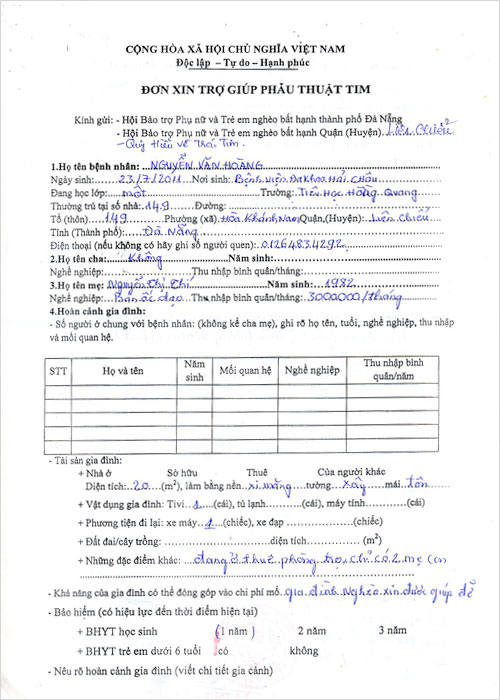 CỘNG HÒA XÃ HỘI CHỦ NGHĨA VIỆT NAM
Độc lập – Tự do – Hạnh phúc
ĐƠN XIN TRỢ GIÚP PHẪU THUẬT TIM
Kính gửi: - Hội Bảo trợ Phụ nữ và Trẻ em nghèo bất hạnh thành phố Đà Nẵng
- Hội Bảo trợ Phụ nữ và Trẻ em nghèo bất hạnh Quận (Huyện)..Liên Chiểu
- Quỹ Hữu về Trái Tim.
1.Họ tên bệnh nhân:...NGUYỄN VĂN HOÀNG
Ngày sinh:......23/7/2011...Nơi sinh:.Bệnh viện Đa khoa Hải Châu
Đang học lớp:.....một......Trường:..Tiểu Học Hồng Quang
Thường trú tại số nhà:149......Đường:
Tổ (thôn)....149......Phường (xã).Hòa Khánh Nam Quận,(Huyện):..Liên Chiểu
Tỉnh (Thành phố):......Đà Nẵng
Điện thoại (nếu không có hãy ghi số người quen):.01264834292
2.Họ tên cha:......Không......Năm sinh:
Nghề nghiệp:......Thu nhập bình quân/tháng:
3.Họ tên mẹ:Nguyễn Thị Chí......Năm sinh:......1982
Nghề nghiệp:...Bán ốc dạo..Thu nhập bình quân/tháng:3000000/tháng
4.Hoàn cảnh gia đình:
- Số người ở chung với bệnh nhân: (không kể cha mẹ), ghi rõ họ tên, tuổi, nghề nghiệp, thu nhập
và mối quan hệ.
STT Họ và tên Năm sinh Mối quan hệ Nghề nghiệp Thu nhập bình quân/năm
- Tài sản gia đình:
+ Nhà ở Sở hữu Thuê Của người khác
Diện tích:..20....(m²), làm bằng nền..xi măng......tường...xây......mái..tôn
+ Vật dụng gia đình: Tivi..1....(cái), tủ lạnh............(cái), máy tính............(cái)
+ Phương tiện đi lại: xe máy..1...(chiếc), xe đạp ..................(chiếc)
+ Đất đai/cây trồng: ..............................diện tích............... (m²)
+ Những đặc điểm khác: ...đang ở thuê phòng trọ chỉ có 2 mẹ con
- Khả năng của gia đình có thể đóng góp vào chi phí mổ..gia đình nghèo xin được giúp đỡ
- Bảo hiểm (có hiệu lực đến thời điểm hiện tại)
+ BHYT học sinh (1 năm) 2 năm 3 năm
+ BHYT trẻ em dưới 6 tuổi có không
- Nêu rõ hoàn cảnh gia đình (viết chi tiết gia cảnh)